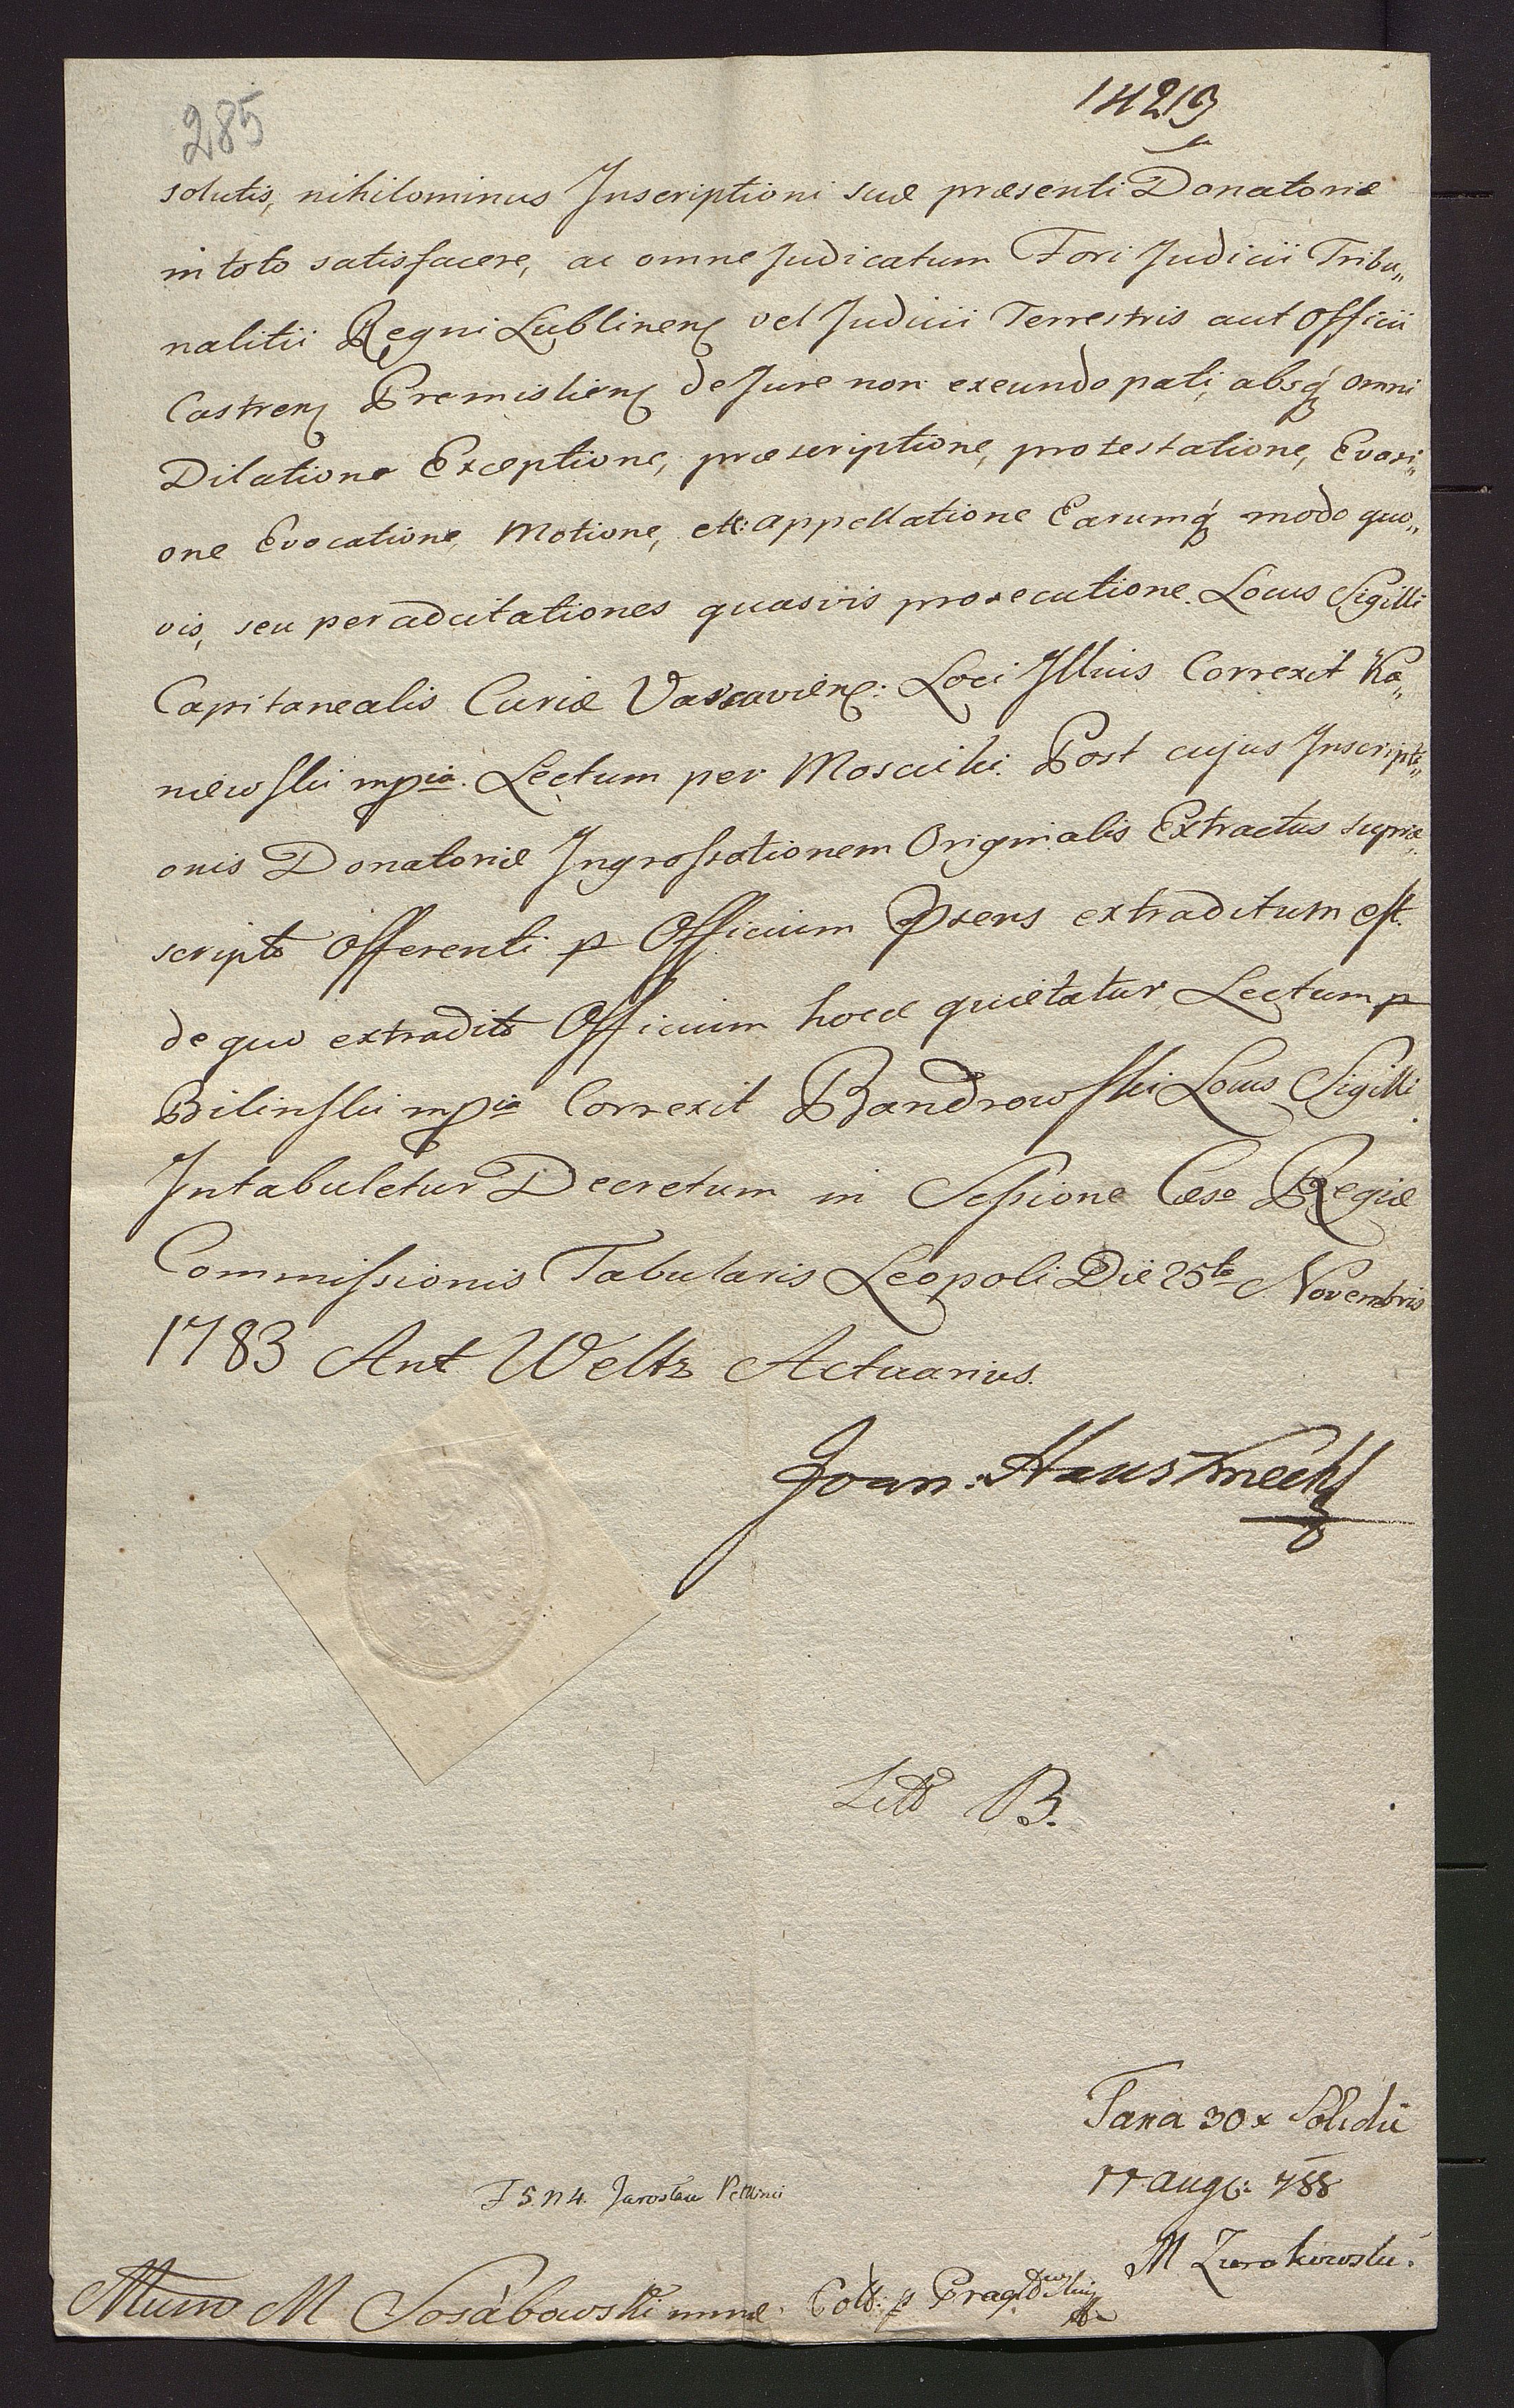 285
14219
solutis, nihilominus Inscriptioni suæ præsenti Donatoriæ
in toto satisfacere, ac omne Judicatum Fori Judicii Tribu„
nalitii Regni Lublinen vel Judicii Terrestris aut Officii
Castren Premislien de Jure non exeundo pati, absq omni
Dilatione Exceptione, præscriptione, protestatione, Evasi„
one Evocatione, Motione, et appellatione Earumq modo quo„
vis, seu per adcitationes quasvis prosecutione. Locus Sigilli
Capitanealis Curiæ Varsavien: Loci Illius Correxit Ka„
niewski mpia. Lectum per Moscicki. Post cujus Inscripti„
onis Donatoriæ Ingrossationem Originalis Extractus supra„
scripto Offerenti p Officium Prens extraditum est.
de quo extradito Officium hocce quietatur, Lectum p
Bilinski mpia Correxit Bandrowski Locus Sigilli.
Intabuletur Decretum in Sessione Cæso Regiæ
Commissionis Tabularis Leopoli Die 25ta Novembris
1783 Ant Weltz Actuarius.
Joan: Hausknecht
Litt B.
Taxa 30x Solidū
11 Aug: 788
M Zurakowski.
F 5. N 4. Jaroslau
M Sosabowski mme. Coll: p